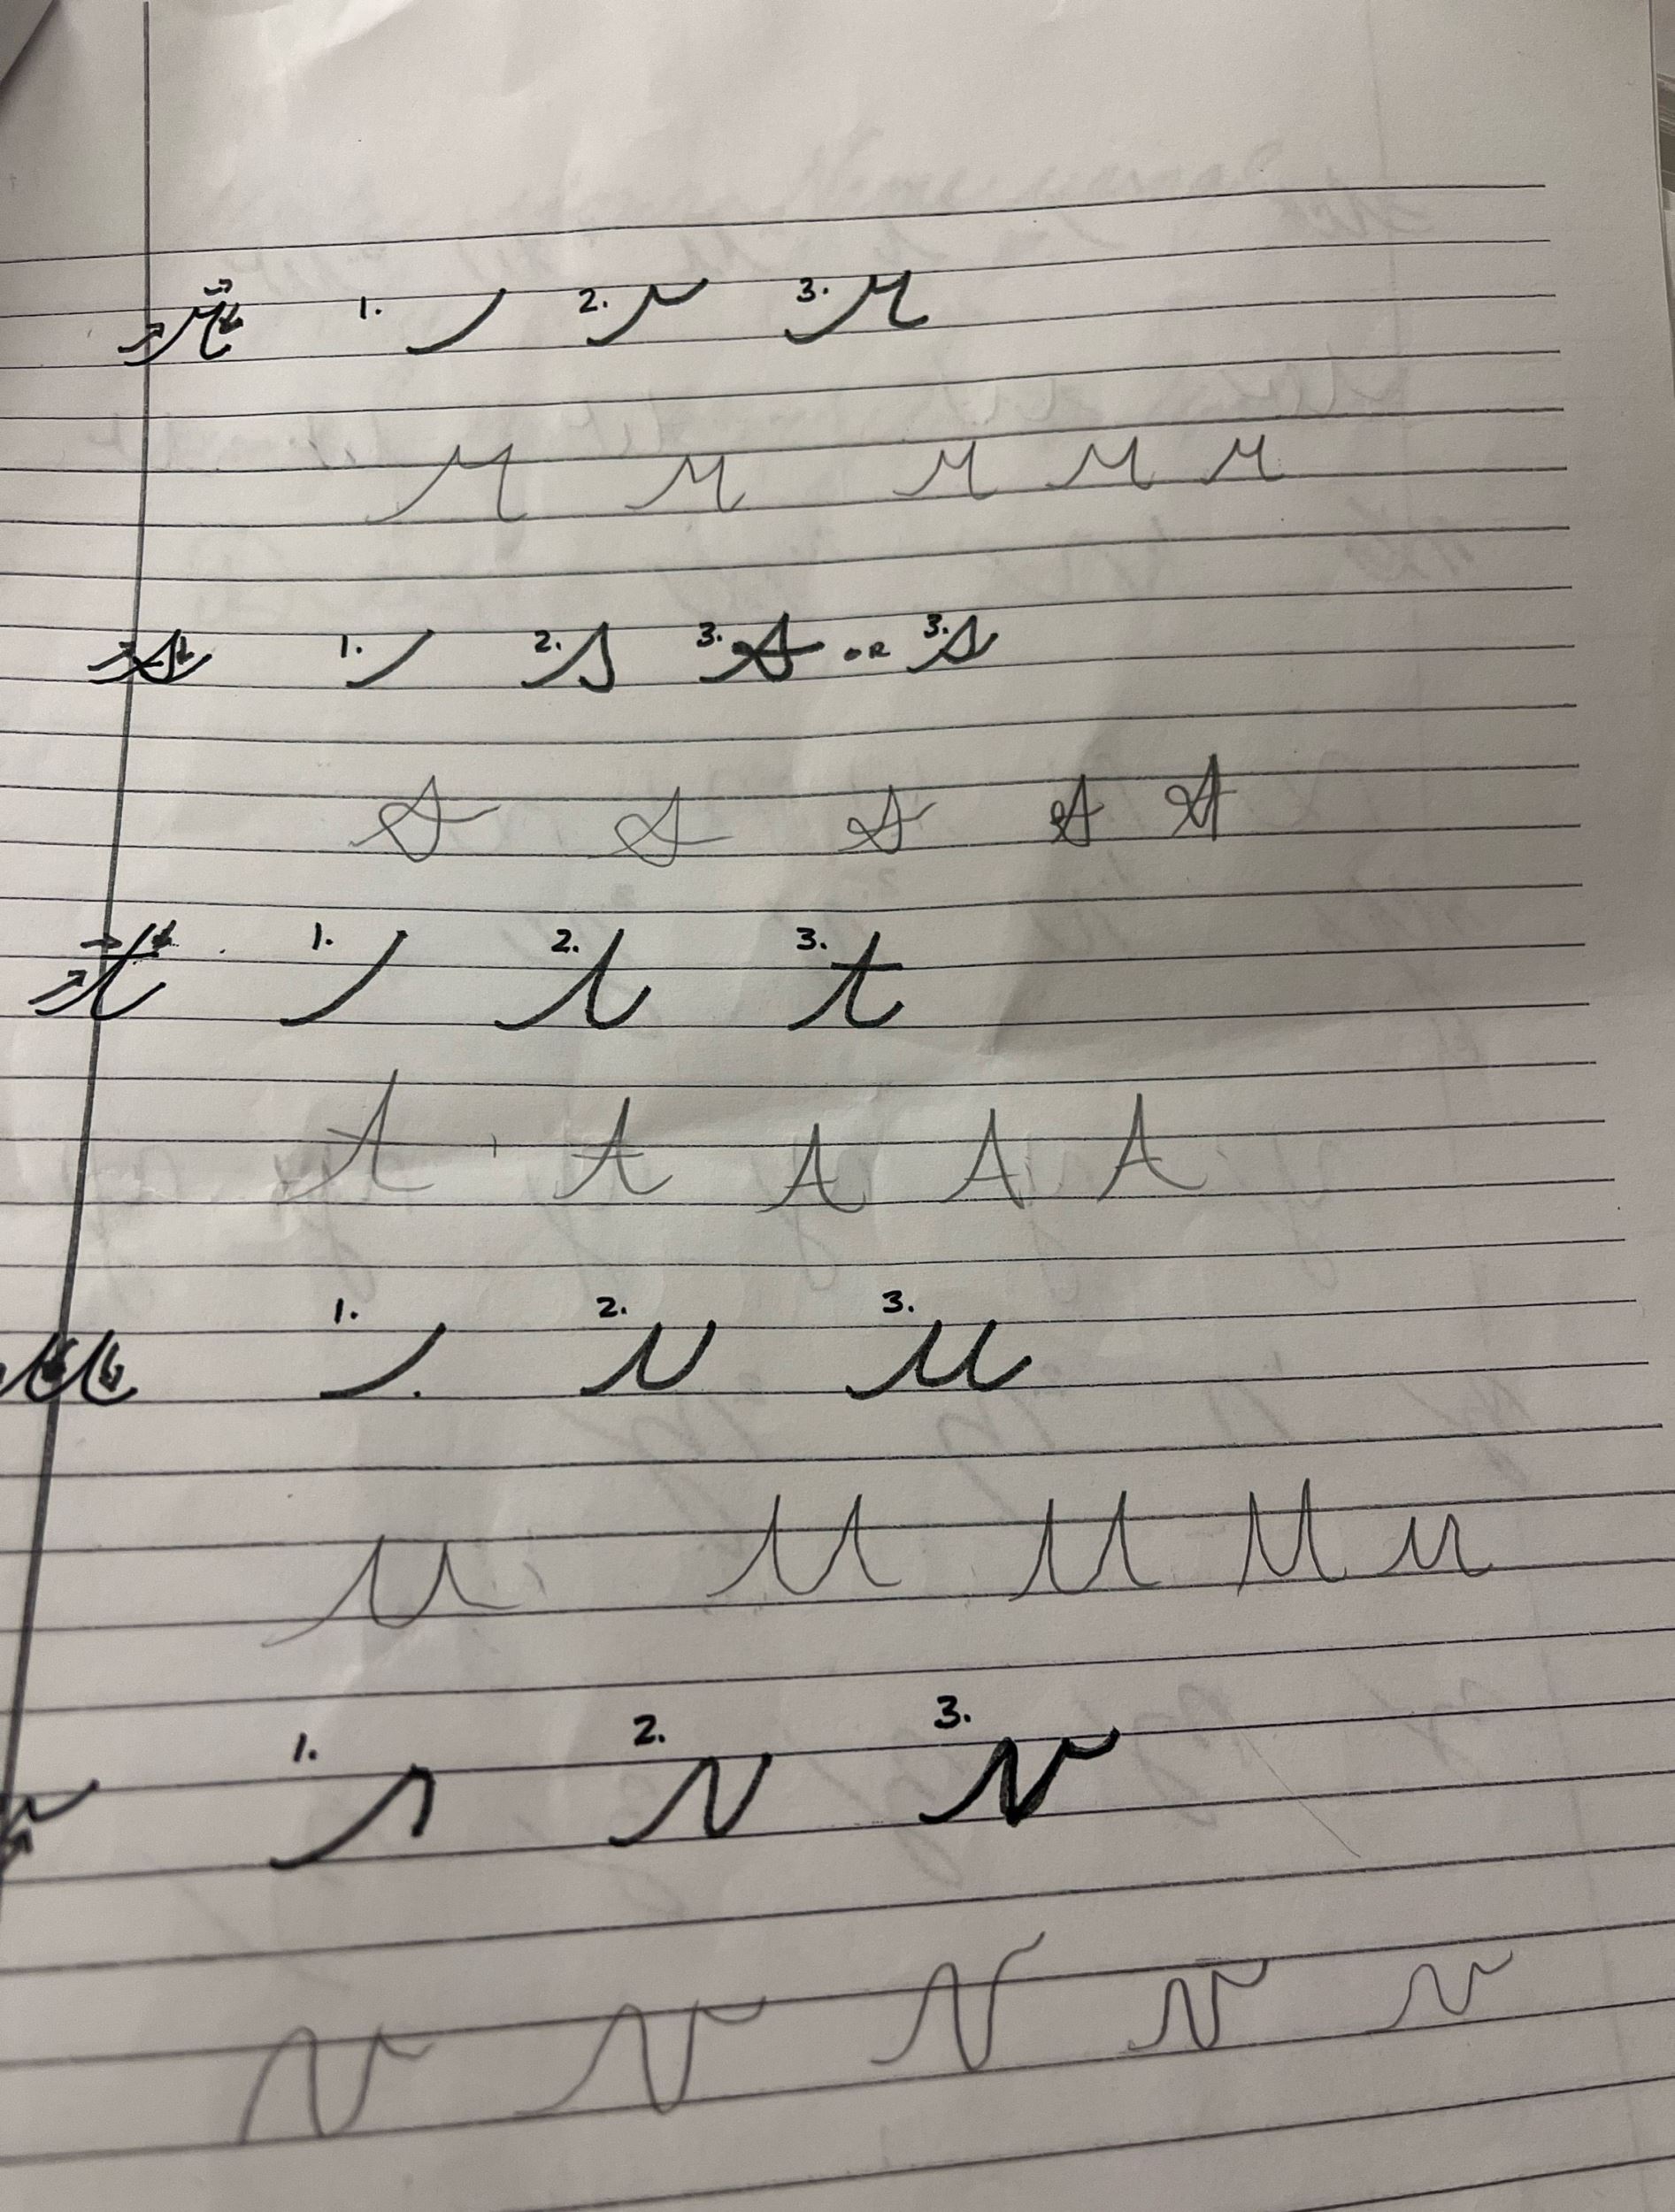 r 1. 2. 3. r
r r r r r
s 1. 2. 3. s or 3. s
s s s s s
t 1. 2. 3. t
t t t t t
u 1. 2. 3. u
u u u u u
v 1. 2. 3. v
v v v v v